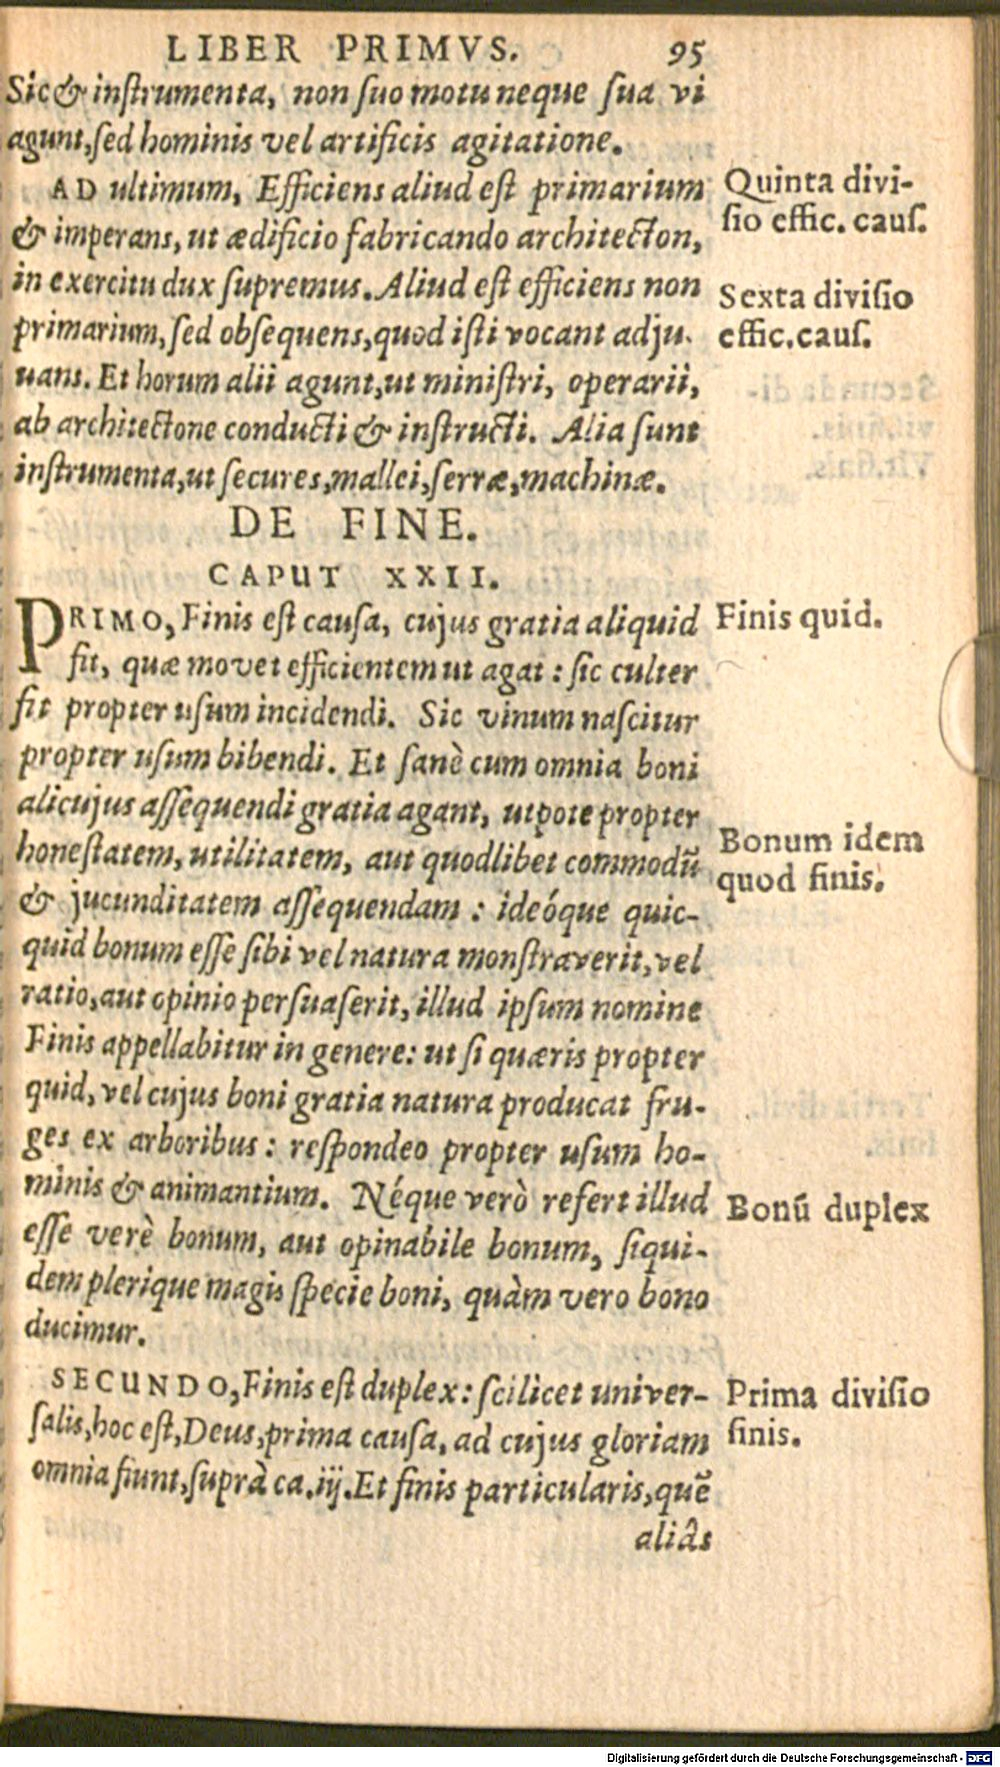 LIBER PRIMVS. 95
Sic & instrumenta, non suo motu neque sua vi
agunt, sed hominis vel artificis agitatione.
AD ultimum, Efficiens aliud est primarium
& imperans, ut ædificio fabricando architecton,
in exercitu dux supremus. Aliud est efficiens non
primarium, sed obsequens, quod isti vocant adju-
vans. Et horum alii agunt, ut ministri, operarii,
ab architectone conducti & instructi. Alia sunt
instrumenta, ut secures, mallei, serræ, machinæ.
Quinta divi-
sio effic. caus.
Sexta divisio
effic. caus.
DE FINE.
CAPUT XXII.
PRIMO, Finis est causa, cujus gratia aliquid
fit, quæ movet efficientem ut agat : sic culter
fit propter usum incidendi. Sic vinum nascitur
propter usum bibendi. Et sanè cum omnia boni
alicujus assequendi gratia agant, utpote propter
honestatem, utilitatem, aut quodlibet commodū
& jucunditatem assequendam : ideóque quic-
quid bonum esse sibi vel natura monstraverit, vel
ratio, aut opinio persuaserit, illud ipsum nomine
Finis appellabitur in genere: ut si quæris propter
quid, vel cujus boni gratia natura producat fru-
ges ex arboribus : respondeo propter usum ho-
minis & animantium. Néque verò refert illud
esse verè bonum, aut opinabile bonum, siqui-
dem plerique magis specie boni, quàm vero bono
ducimur.
Finis quid.
Bonum idem
quod finis.
Bonū duplex
SECUNDO, Finis est duplex: scilicet univer-
salis, hoc est, Deus, prima causa, ad cujus gloriam
omnia fiunt, suprà ca. iij. Et finis particularis, quē
aliâs
Prima divisio
finis.
Digitalisierung gefördert durch die Deutsche Forschungsgemeinschaft - DFG